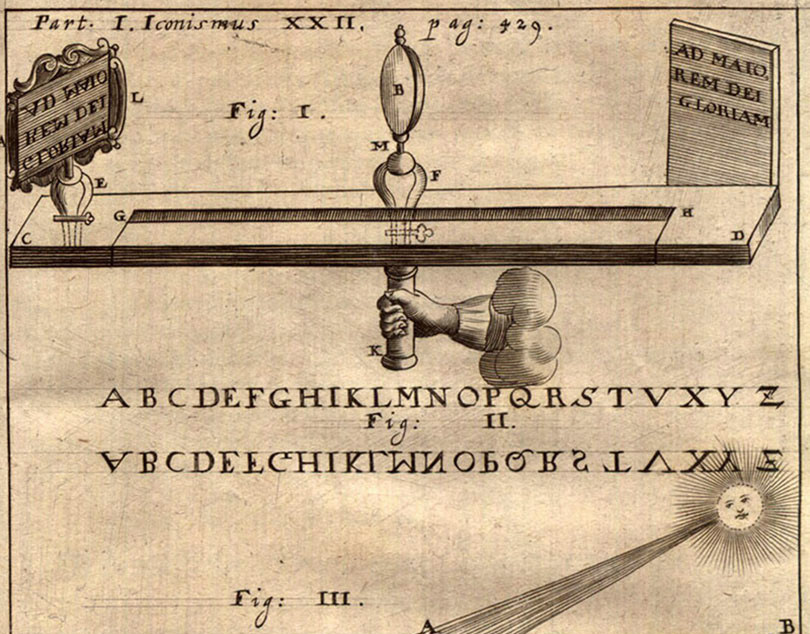 Part. I. Iconismus XXII. pag: 429.
AD MAIO
REM DEI
GLORIAM
L
Fig: I.
B
AD MAIO.
REM DEI
GLORIAM
M
E
F
G
H
C
D
K
ABCDEFGHIKLMNOPQRSTVXYZ
Fig: II.
ABCDEFGHIKLMNOPQRSTVXYZ
Fig: III.
A
B